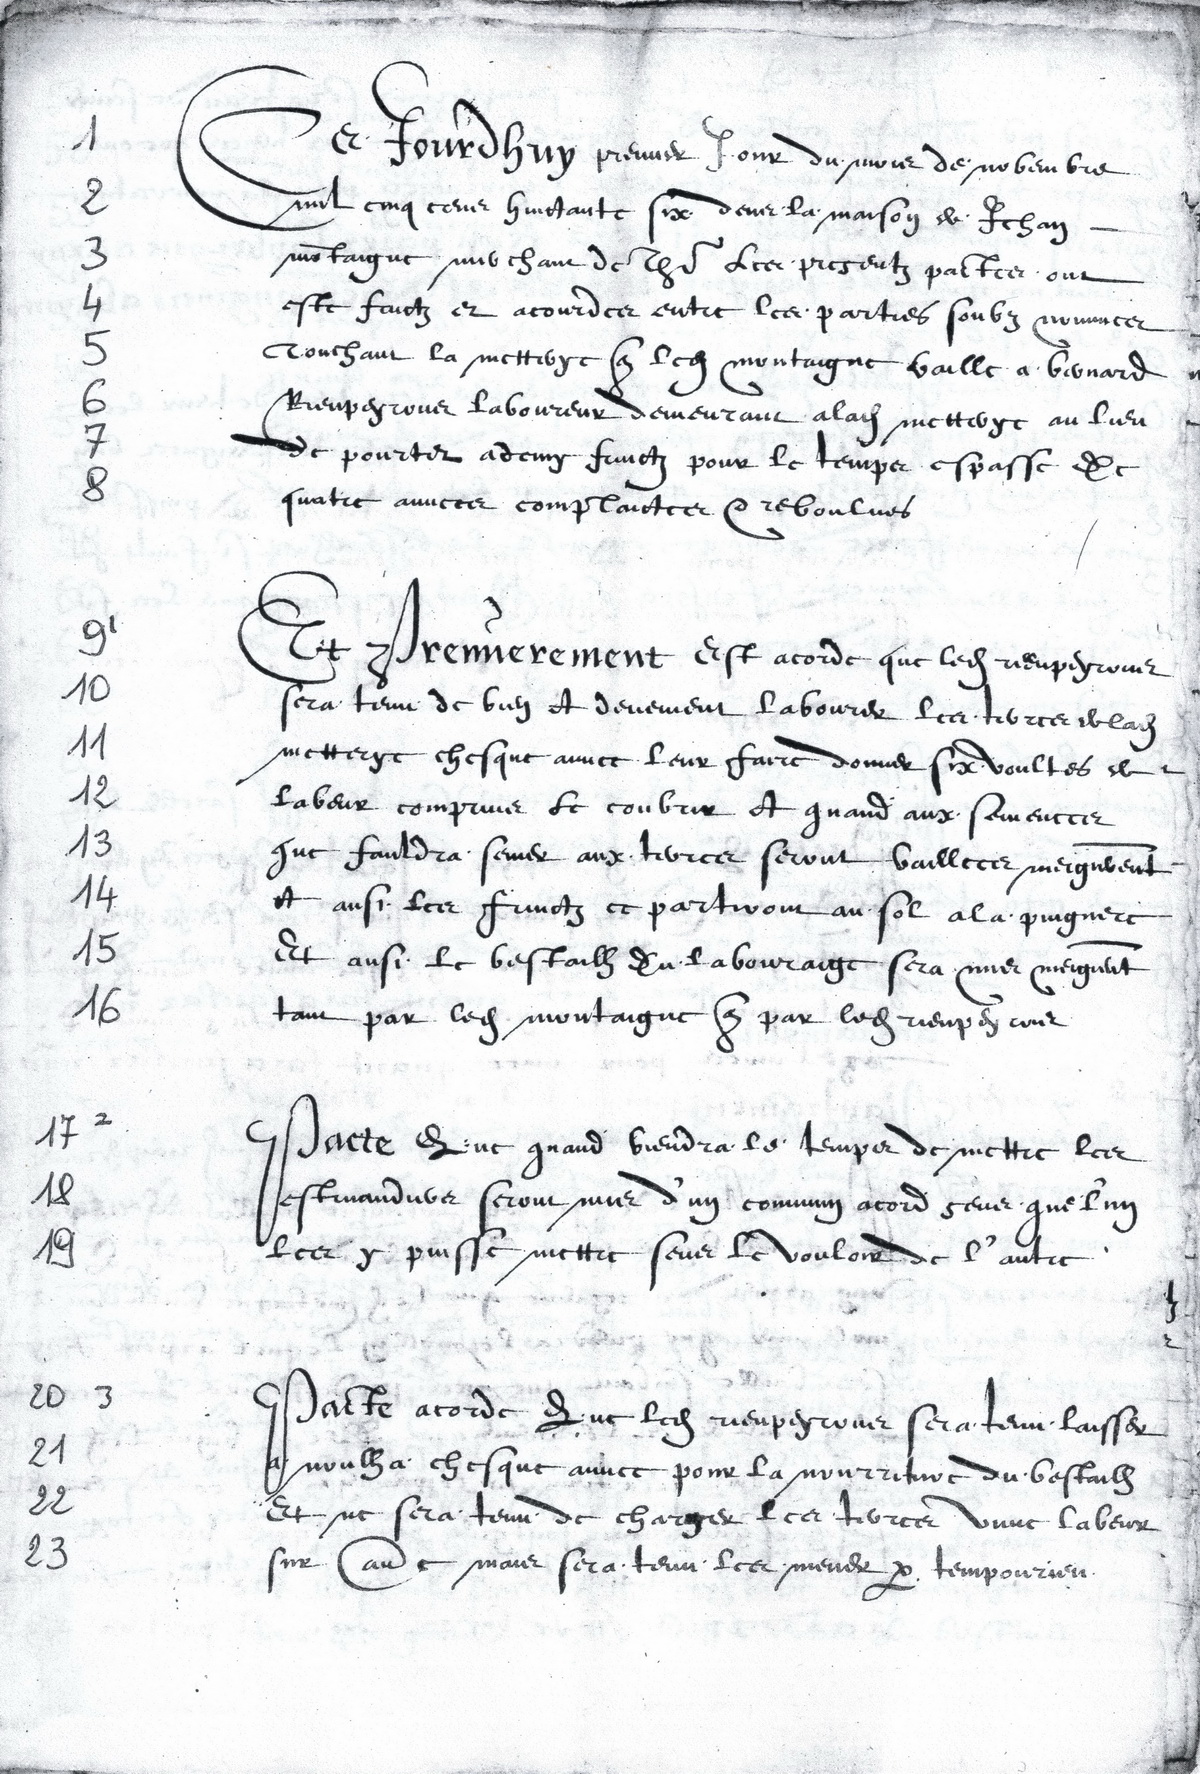 1 Cejourdhuy premier Jour du mois de novembre
2 mil cinq cens huictante six dens la maison de Jehan
3 montaigne merchant de les presents pactes ont
4 este faictz et acourdes entre les parties soubz nommes
5 Touchant la metterye q ledq montaigne baille a bernard
6 Rieupeyrous laboureur demeurant a lad mettrye au lieu
7 de pourter a demy fruictz pour le temps espasse de
8 quatre annees complaictes & revoulues
9 1 Et Premierement Est acorde que led rieupeyrous
10 sera tenu de bien et deuement labourer les terres de lad
11 metterye chesque annee leur faire donner six voultes de
12 labeur comprins le coubrir et quand aux semences
13 que fauldra semer aux terres seront baillees meigement
14 et ansi les fruictz ce partiront au sol a la pugnere
15 Et ansi le bestailh du labouraige sera mis meigement
16 tant par led montaigne q par led rieupeyrous
17 2 Pacte Que quand viendra le temps de mettre les
18 estivandiers seront mis d'un commun acord sens que l'un
19 les y puisse mettre sens le vouloir de l'autre
20 3 Pacte acorde Que led rieupeyrous sera tenu laisser
21 a noulha chesque annee pour la nourriture du bestailh
22 Et ne sera tenu de charger les terres d'une labeur
23 sur aut e mais sera tenu les mener p tempourieu